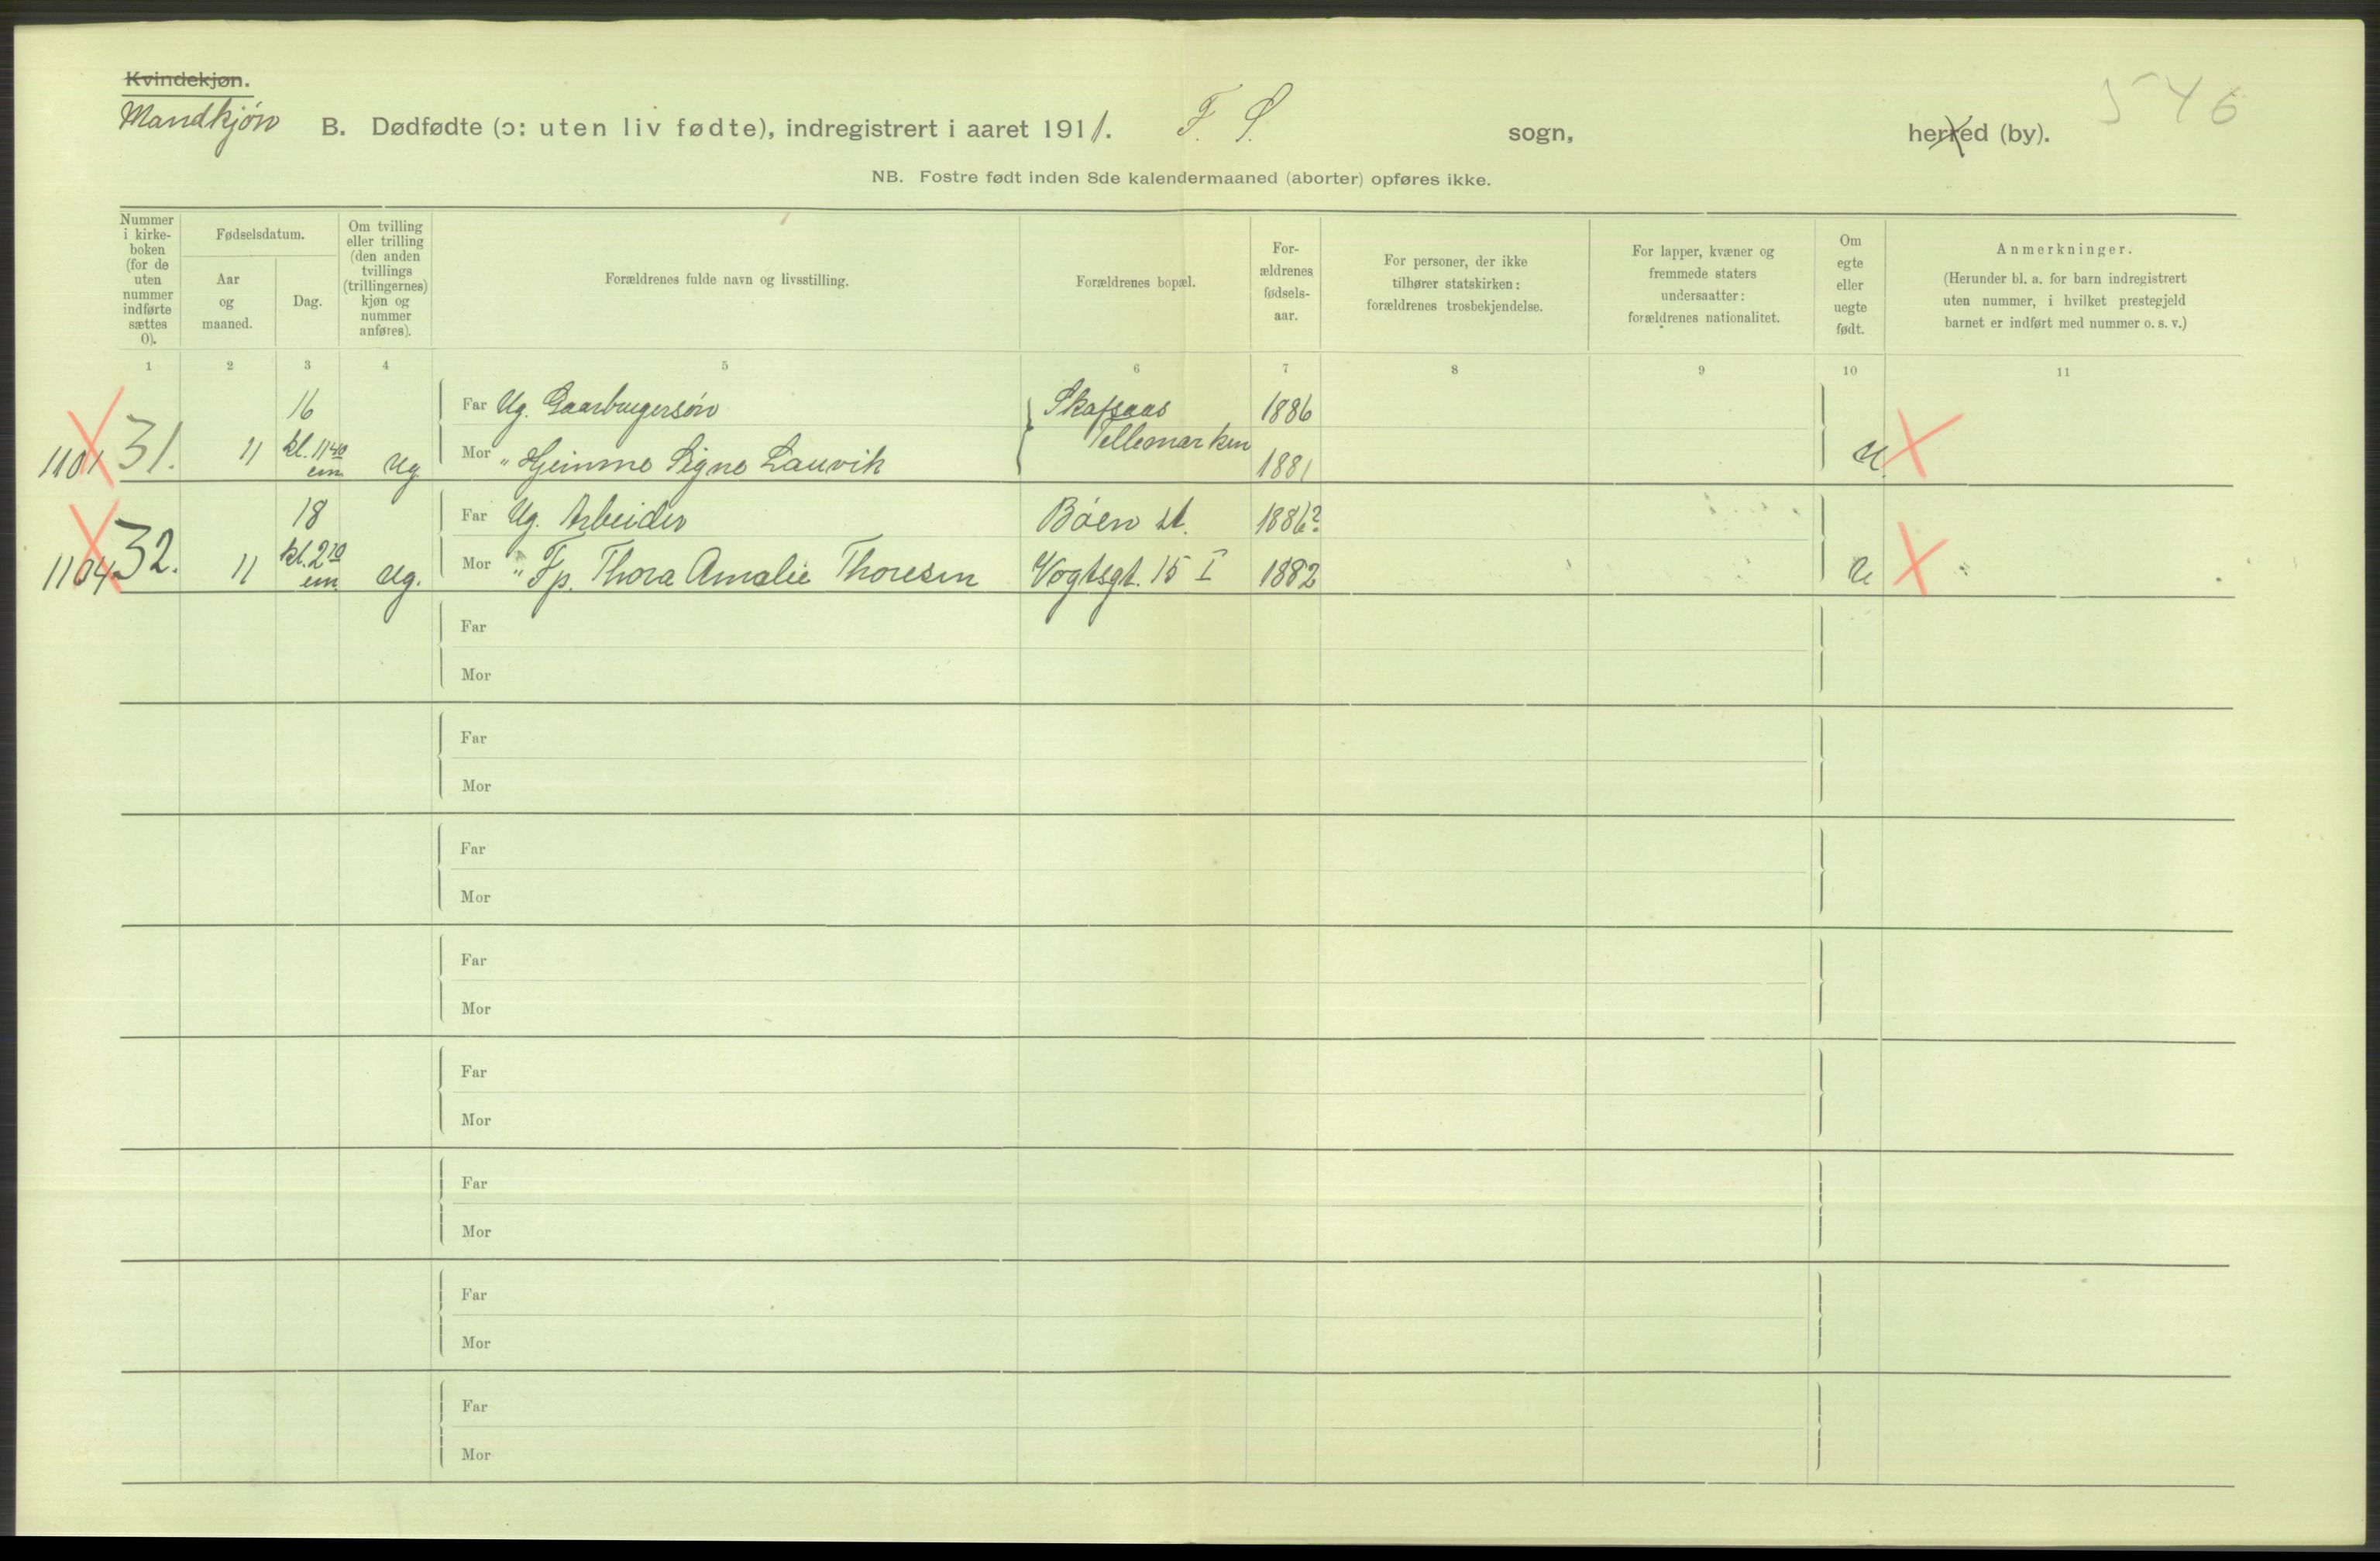 Kvindekjøn.
Mandkjøn
B. Dødfødte (ɔ: uten liv fødte), indregistrert i aaret 1911. F. S. sogn, herred (by).
546
NB. Fostre født inden 8de kalendermaaned (aborter) opføres ikke.
Nummer i kirkeboken (for de uten nummer indførte sættes 0).
Fødselsdatum.
Aar og maaned.
Dag.
Om tvilling eller trilling (den anden tvillings (trillingernes) kjøn og nummer anføres).
Forældrenes fulde navn og livsstilling.
Forældrenes bopæl.
Forældrenes fødselsaar.
For personer, der ikke tilhører statskirken: forældrenes trosbekjendelse.
For lapper, kvæner og fremmede staters undersaatter: forældrenes nationalitet.
Om egte eller uegte født.
Anmerkninger.
(Herunder bl. a. for barn indregistrert uten nummer, i hvilket prestegjeld barnet er indført med nummer o. s. v.)
1 2 3 4 5 6 7 8 9 10 11
16 Far Ug. Gaarbrugersøn Skafsaas 1886
1101 31. 11 kl. 11 40 em Ug Mor " Hjemme Signe Lauvik Tellemarken 1881 U.
18 Far Ug. Arbeider Bøen st. 1886?
1104 32. 11 kl. 2 20 em Ug. Mor " Tp. Thora Amalie Thoresen Vogtsgt. 15 I 1882 U
Far
Mor
Far
Mor
Far
Mor
Far
Mor
Far
Mor
Far
Mor
Far
Mor
Far
Mor